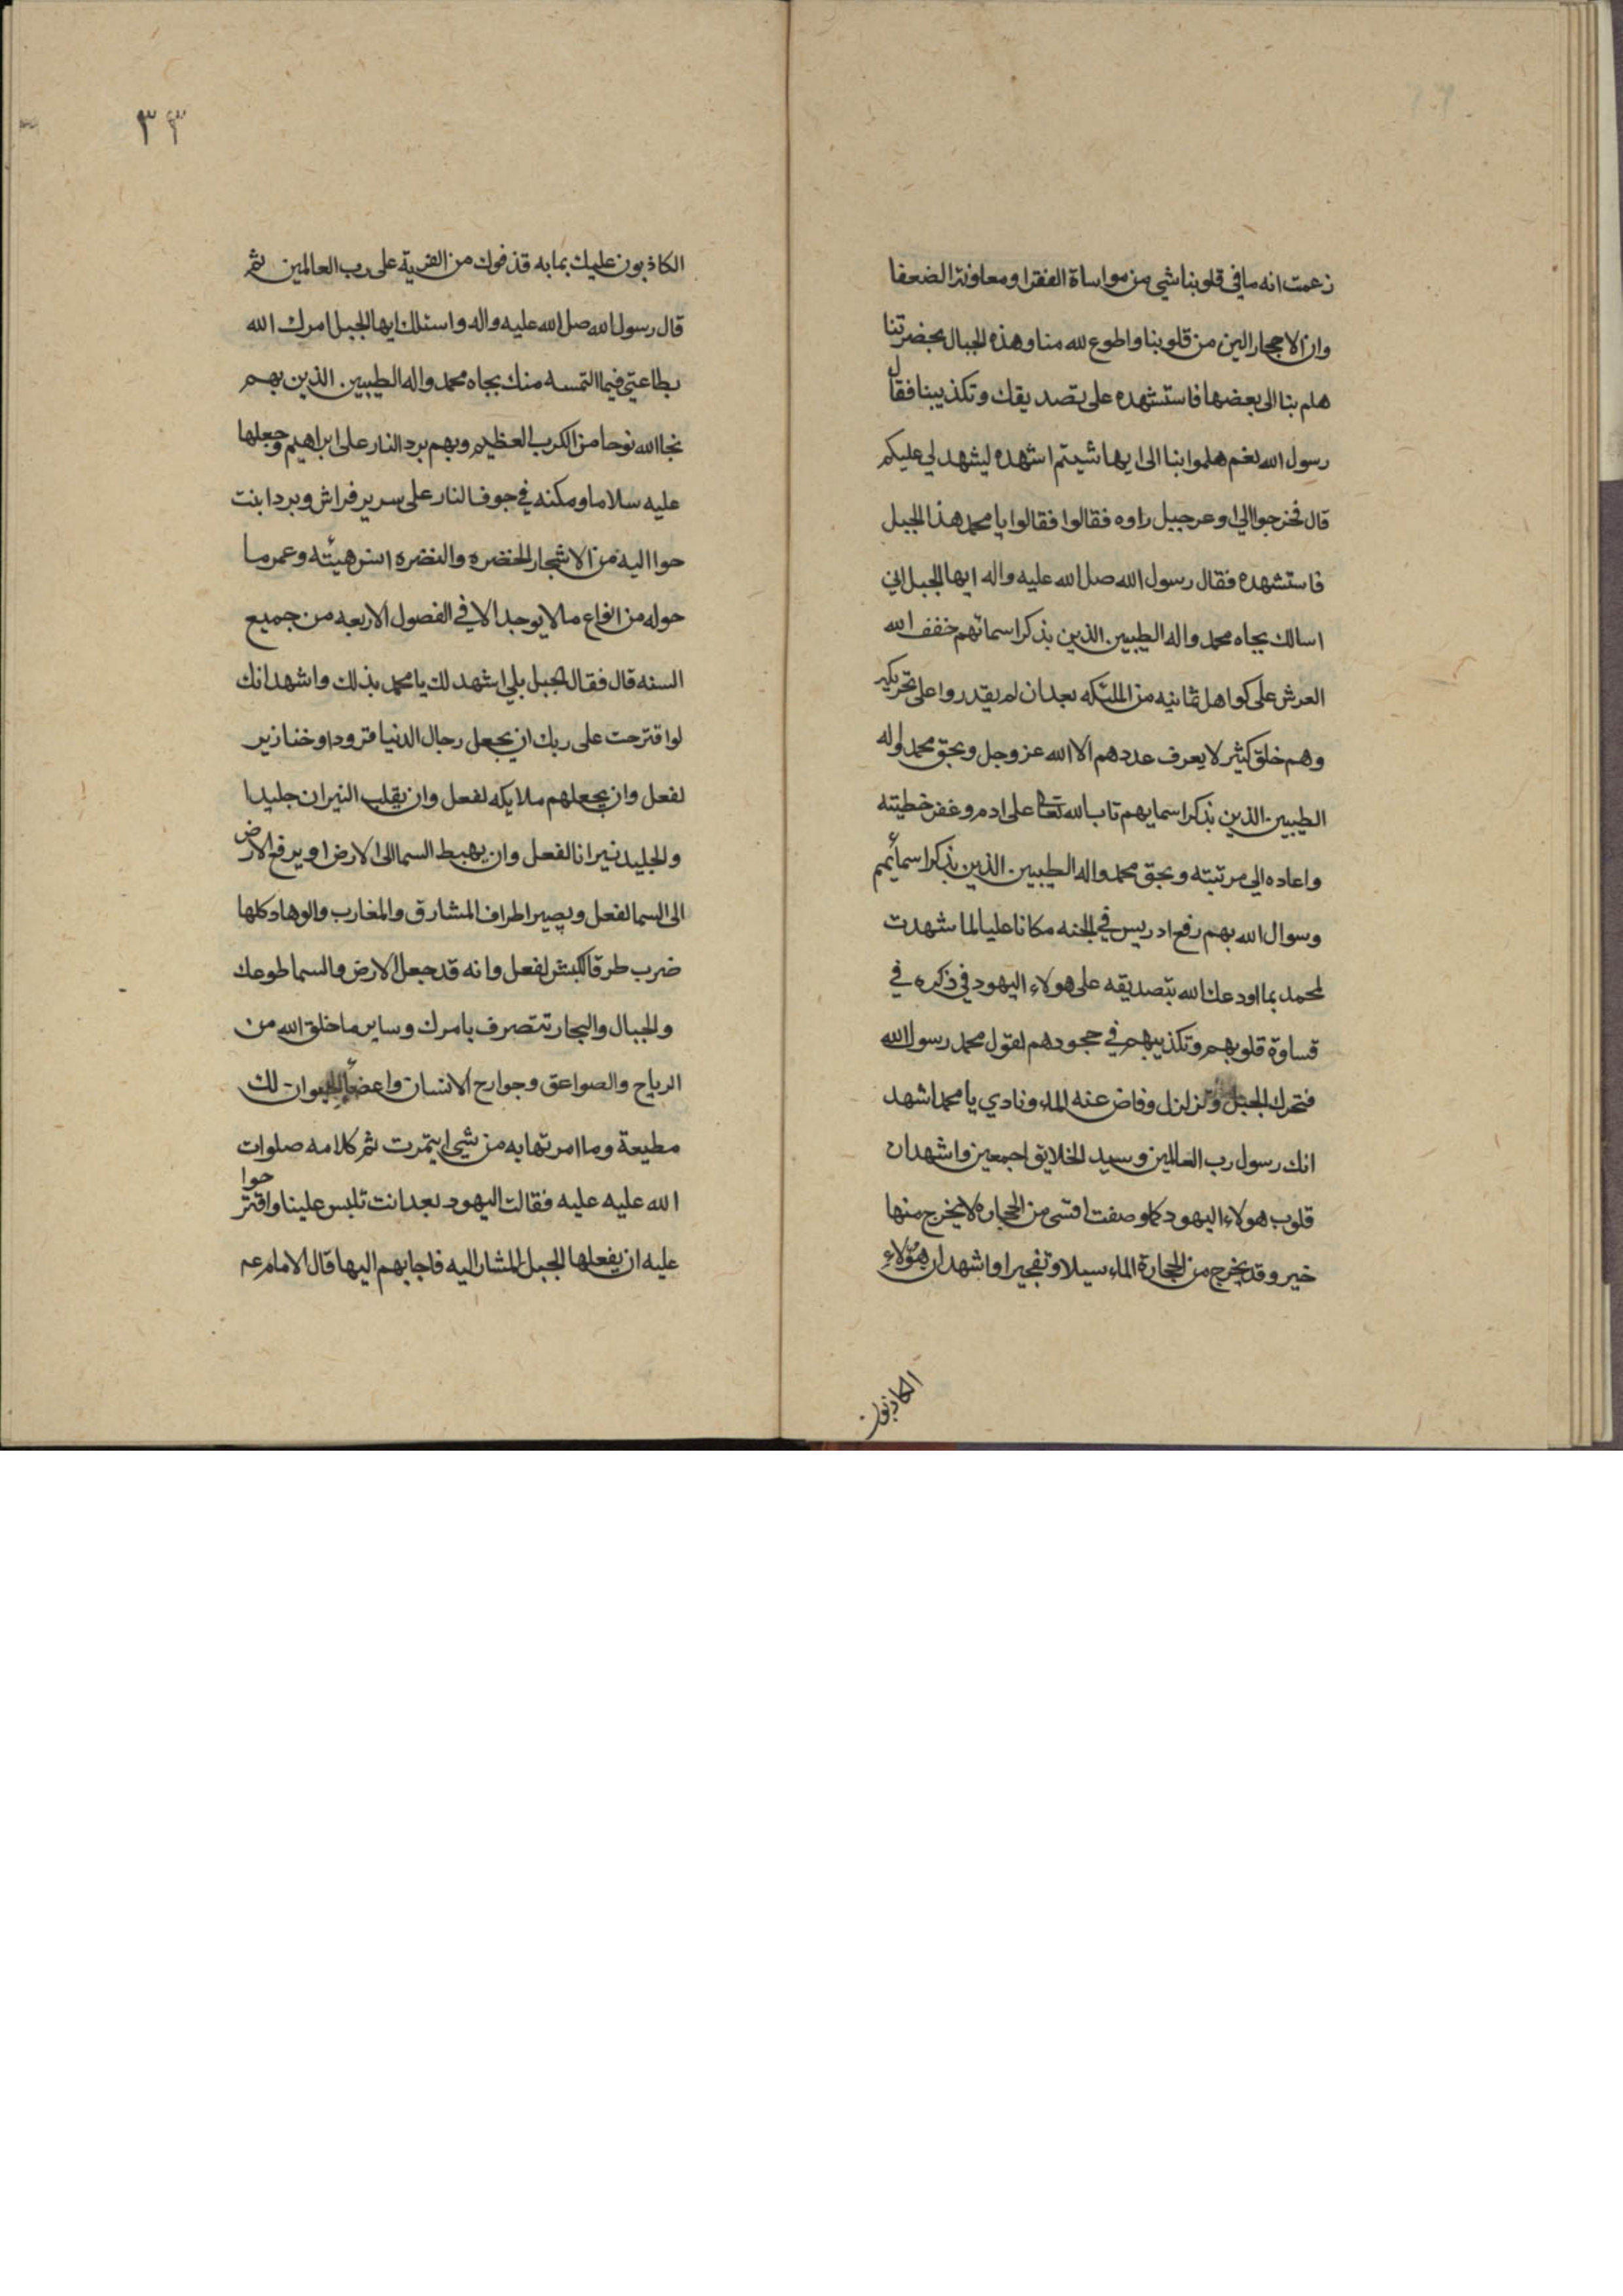 زعمت انه ما في قلوبنا شي من مواساة الفقرا ومعاونة الضعفا
وان الاحجار الين من قلوبنا واطوع لله منا وهذه الجبال بحضرتنا
هلم بنا الى بعضها فاستشهده على تصديقك وتكذيبنا فقال
رسول الله نعم هلموا بنا الى ايها شيتم اشهده ليشهد لي عليكم
قال فخرجوا الي اوعر جبل راوه فقالوا فقالوا يا محمد هذا الجبل
فاستشهده فقال رسول الله صل الله عليه واله ايها الجبل اني
اسالك بجاه محمد واله الطيبين الذين بذكر اسمائهم خفف الله
العرش على كواهل ثمانيه من الملئكه بعد ان لم يقدروا على تحريكه
وهم خلق كثير لا يعرف عددهم الا الله عز وجل وبحق محمد واله
الطيبين الذين بذكر اسمايهم تاب الله تعا على ادم وغفر خطيته
واعاده الي مرتبته وبحق محمد واله الطيبين الذين بذكر اسمائهم
وسوال الله بهم رفع ادريس في الجنه مكانا عليا لما شهدت
لمحمد بما اودعك الله بتصديقه على هولاء اليهود في ذكره في
قساوة قلوبهم وتكذيبهم في جحودهم لقول محمد رسول الله
فتحرك الجبل وتزلزل وفاض عنه الماء ونادي يا محمد اشهد
انك رسول رب العالمين وسيد الخلايق اجمعين واشهد ان
قلوب هولاء اليهود كما وصفت اقسى من الحجاره لا يخرج منها
خير وقد يخرج من الحجارة الماء سيلا وتفجيرا واشهد ان هؤلاء
الكاذبون
٣٣
الكاذبون عليك بما به قذفوك من الفرية على رب العالمين ثم
قال رسول الله صل الله عليه واله واسئلك ايها الجبل امرك الله
بطاعتي فيما التمسه منك بجاه محمد واله الطيبين الذين بهم
نجا الله نوحا من الكرب العظيم وبهم برد النار على ابراهيم وجعلها
عليه سلاما ومكنه في جوف النار على سرير فراش وبردا بنت
حوا اليه من الاشجار الخضره والنضره هيئته وعمر ما
حوله من انواع ما لا يوجد الا في الفصول الاربعه من جميع
السنه قال فقال الجبل بلي اشهد لك يا محمد بذلك واشهد انك
لو اقترحت على ربك ان يجعل رجال الدنيا قرودا وخنازير
لفعل وان يجعلهم ملايكه لفعل وان يقلب النيران جليدا
والجليد نيرانا لفعل وان يهبط السما الى الارض او يرفع الارض
الى السما لفعل ويصير اطراف المشارق والمغارب والوهاد كلها
ضرب طرف الكبش لفعل وانه قد جعل الارض والسما طوعك
والجبال والبحار تتصرف بامرك وساير ما خلق الله من
الرياح والصواعق وجوارح الانسان واعضاء الحيوان لك
مطيعة وما امرتها به من شي ايتمرت ثم كلامه صلوات
الله عليه عليه فقالت اليهود بعد انت تلبس علينا واقترحوا
عليه ان يفعلها الجبل المشار اليه فاجابهم اليها قال الامام عم